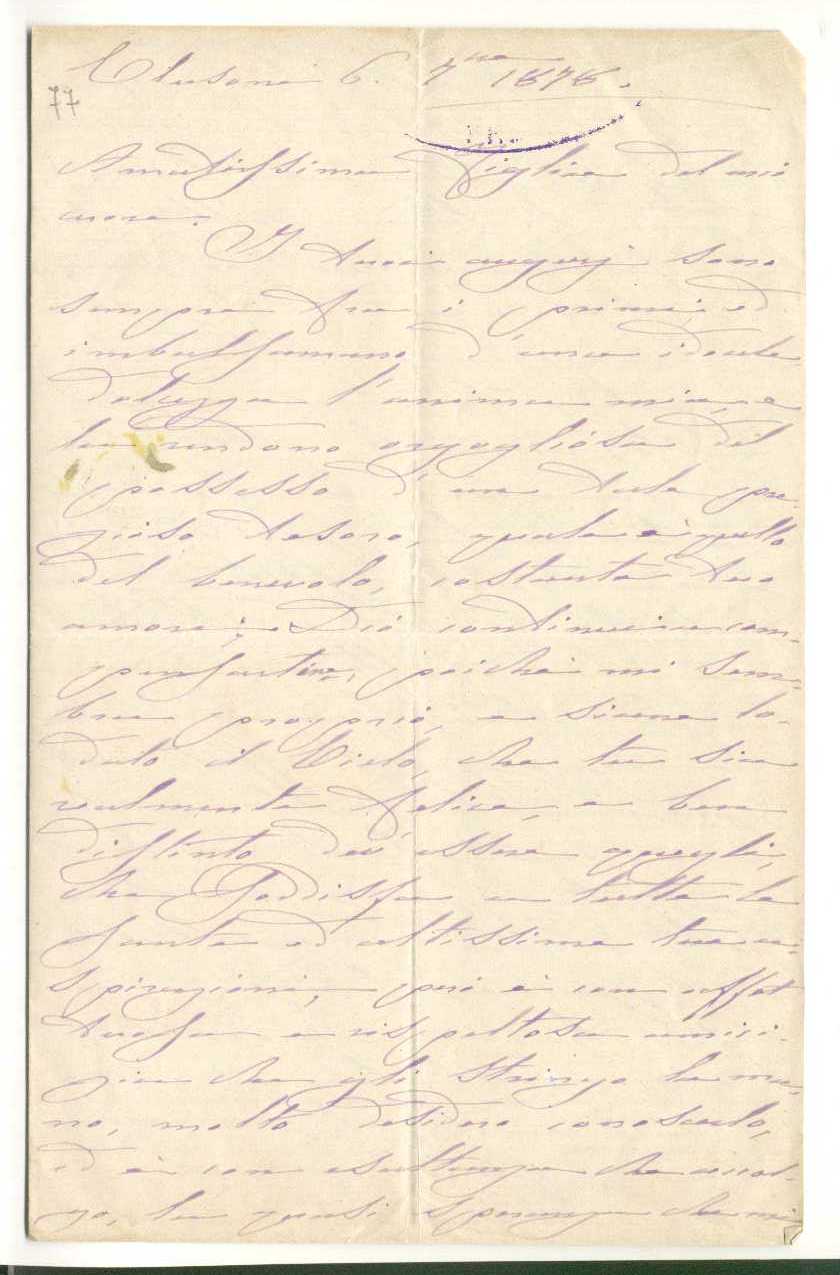 Clusone 6. 7bre 1878.
77
Amatissima Figlia del mio
cuore.
I tuoi augurj sono
sempre tra i primi, ed
imbalsamano d'una ideale
dolcezza l'anima mia, e
la rendono orgogliosa del
possesso d'un tale pre-
zioso tesoro, quale è quello
del benevolo, costante tuo
amore; Dio continui a com-
, poichè mi sem-
bra proprio, e siane lo-
dato il Cielo, che tu sia
realmente felice, e ben
distinto dev'essere quegli,
che soddisfa a tutte le
sante ed altissime tue a-
spirazioni, poi è con affet
tuosa e rispettosa amici-
zia che gli stringo la ma-
no, molto desidero conoscerlo,
ed è con esultanza che accol-
go, la quasi speranza che mi